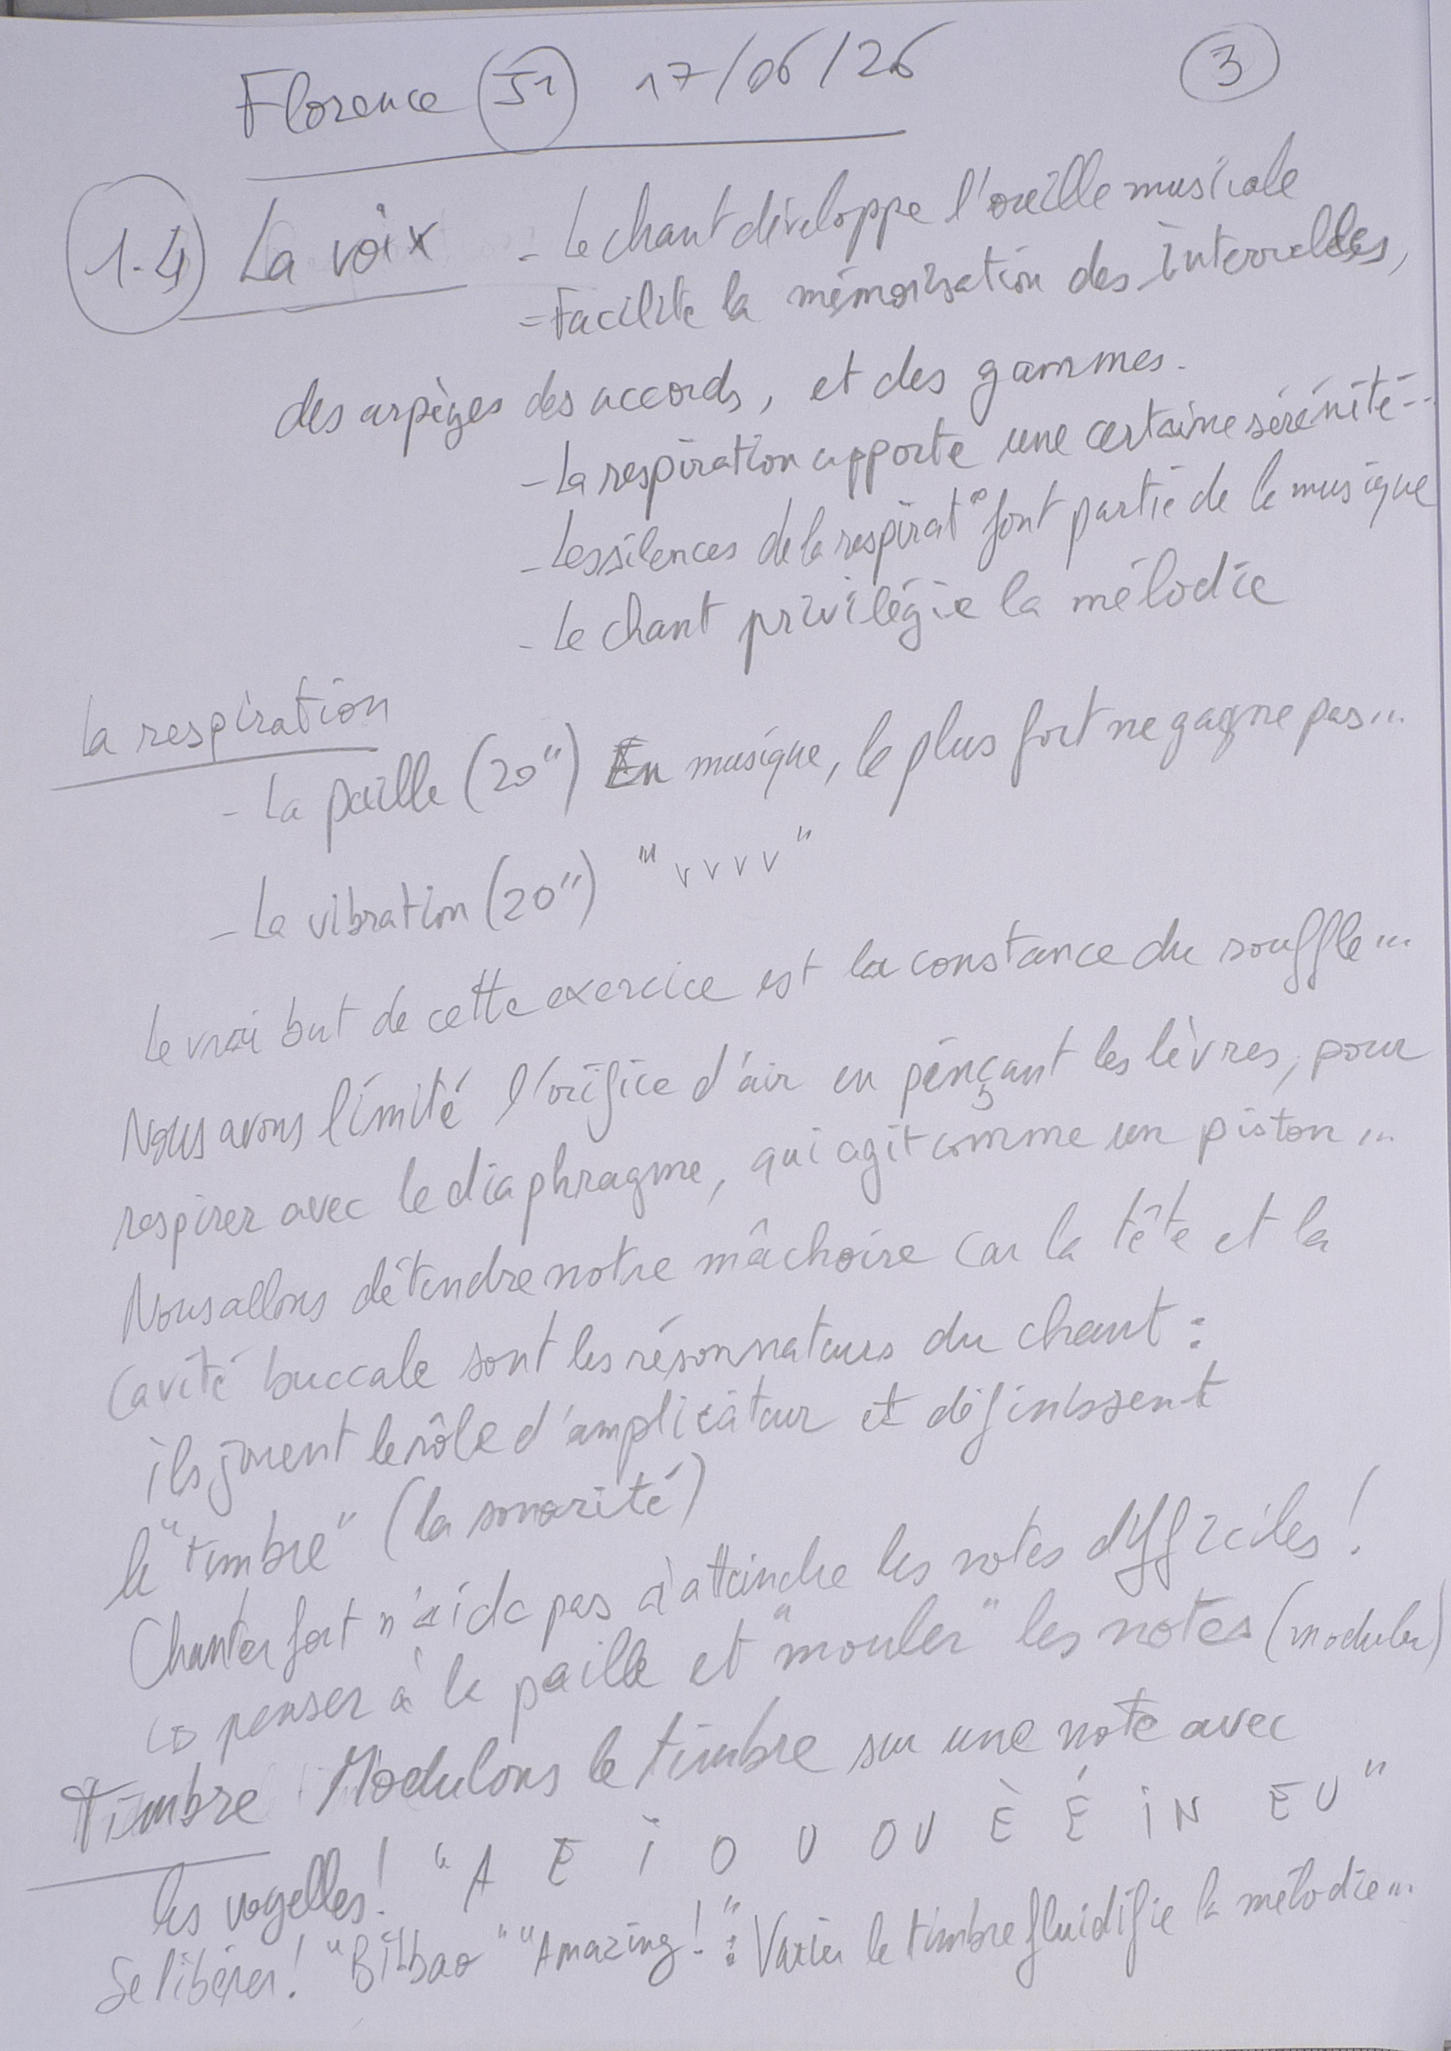 Florence J1 17/06/26 3
1.4 La voix - Le chant développe l'oreille musicale
- Facilite la mémorisation des intervalles,
des arpèges des accords, et des gammes.
- La respiration apporte une certaine sérénité...
- Les silences de la respirat° font partie de la musique
- Le chant privilégie la mélodie
La respiration
- La paille (20") En musique, le plus fort ne gagne pas...
- La vibration (20") "vvvv"
Le vrai but de cette exercice est la constance du souffle...
Nous avons limité l'orifice d'air en pinçant les lèvres, pour
respirer avec le diaphragme, qui agit comme un piston...
Nous allons détendre notre mâchoire car la tête et la
cavité buccale sont les résonnateurs du chant :
ils jouent le rôle d'amplicateur et définissent
le "timbre" (la sonorité)
Chanter fort n'aide pas à atteindre les notes difficiles !
↳ penser à la paille et "mouler" les notes (moduler)
Timbre Modulons le timbre sur une note avec
les voyelles ! "A E I O U OU È É IN EU"
Se libérer ! "Bilbao" "Amazing !" : Varier le timbre fluidifie la mélodie...